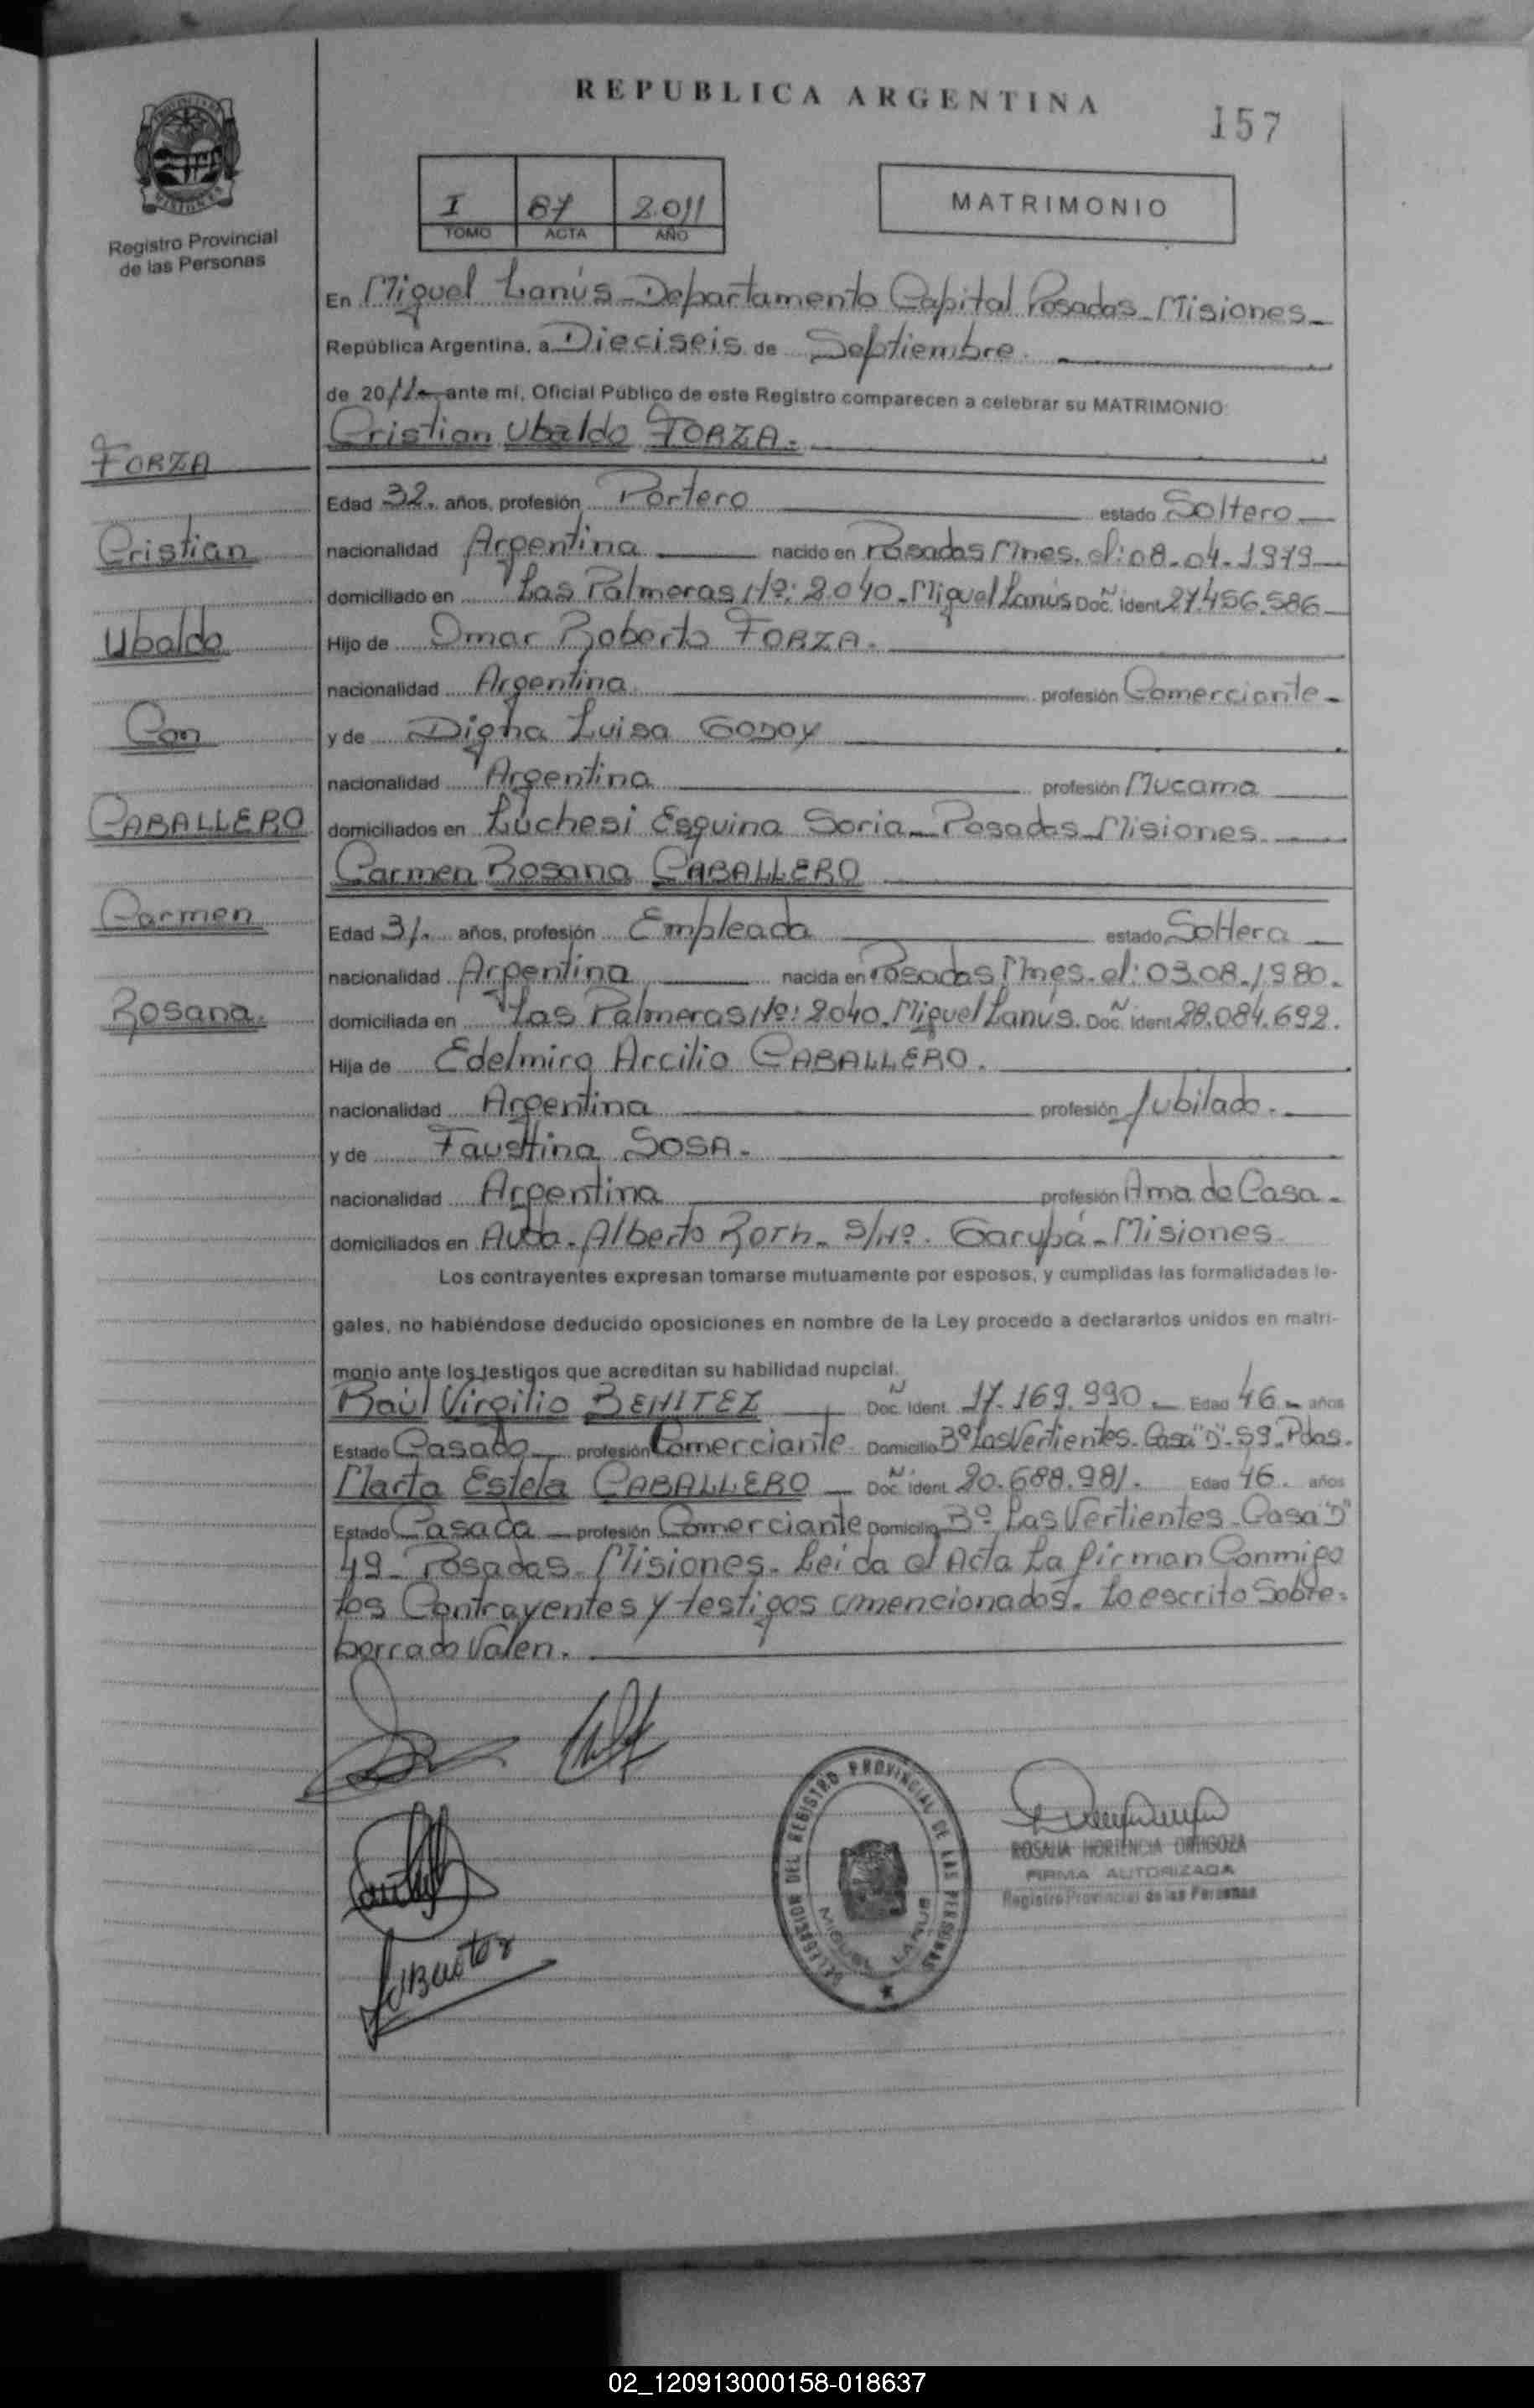 REPUBLICA ARGENTINA
157
I 87 2.011
TOMO ACTA AÑO
MATRIMONIO
Registro Provincial
de las Personas
En Miguel Lanús - Departamento Capital Posadas - Misiones -
República Argentina, a Dieciseis de Septiembre.
de 2011 ante mí, Oficial Público de este Registro comparecen a celebrar su MATRIMONIO:
Cristian Ubaldo FORZA.-
FORZA
Cristian
Ubaldo
Con
CABALLERO
Carmen
Rosana.
Edad 32. años, profesión Portero estado Soltero
nacionalidad Argentina nacido en Posadas Mnes. el: 08-04-1979
domiciliado en Las Palmeras Nº: 2040 - Miguel Lanús Doc. Ñ ident 27.456.586
Hijo de Omar Roberto FORZA.
nacionalidad Argentina profesión Comerciante -
y de Digna Luisa GODOY
nacionalidad Argentina profesión Mucama
domiciliados en Luchesi Esquina Soria - Posadas - Misiones
Carmen Rosana CABALLERO
Edad 31. años, profesión Empleada estado Soltera
nacionalidad Argentina nacida en Posadas Mnes. el: 03.08.1980.
domiciliada en Las Palmeras Nº: 2040. Miguel Lanús. Doc. Ñ Ident 28.084.692.
Hija de Edelmiro Arcilio CABALLERO.
nacionalidad Argentina profesión Jubilado.
y de Faustina SOSA.
nacionalidad Argentina profesión Ama de Casa.
domiciliados en Avda. Alberto Roth - S/Nº. Garupá - Misiones
Los contrayentes expresan tomarse mutuamente por esposos, y cumplidas las formalidades le-
gales, no habiéndose deducido oposiciones en nombre de la Ley procedo a declararlos unidos en matri-
monio ante los testigos que acreditan su habilidad nupcial.
Raúl Virgilio BENITEZ Doc. Ñ Ident. 17.169.990 - Edad 46 - años
Estado Casado profesión Comerciante Domicilio Bº Las Vertientes. Casa "D". 59. Pdas.
Marta Estela CABALLERO - Doc. Ñ ident 20.688.981. Edad 46. años
Estado Casada - profesión Comerciante Domicilio Bº Las Vertientes Casa "D"
49 - Posadas - Misiones. Leida el Acta La firman Conmigo
los Contrayentes y testigos mencionados. Lo escrito Sobre-
borrado Valen.
DELEGACION DEL REGISTRO PROVINCIAL DE LAS PERSONAS
MIGUEL LANUS
ROSALIA HORTENCIA ORTIGOZA
FIRMA AUTORIZADA
Registro Provincial de las Personas
02_120913000158-018637